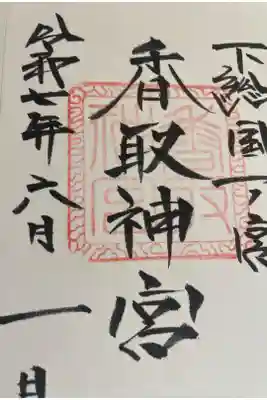 下総国一之宮
香取神宮
令和七年六月一日